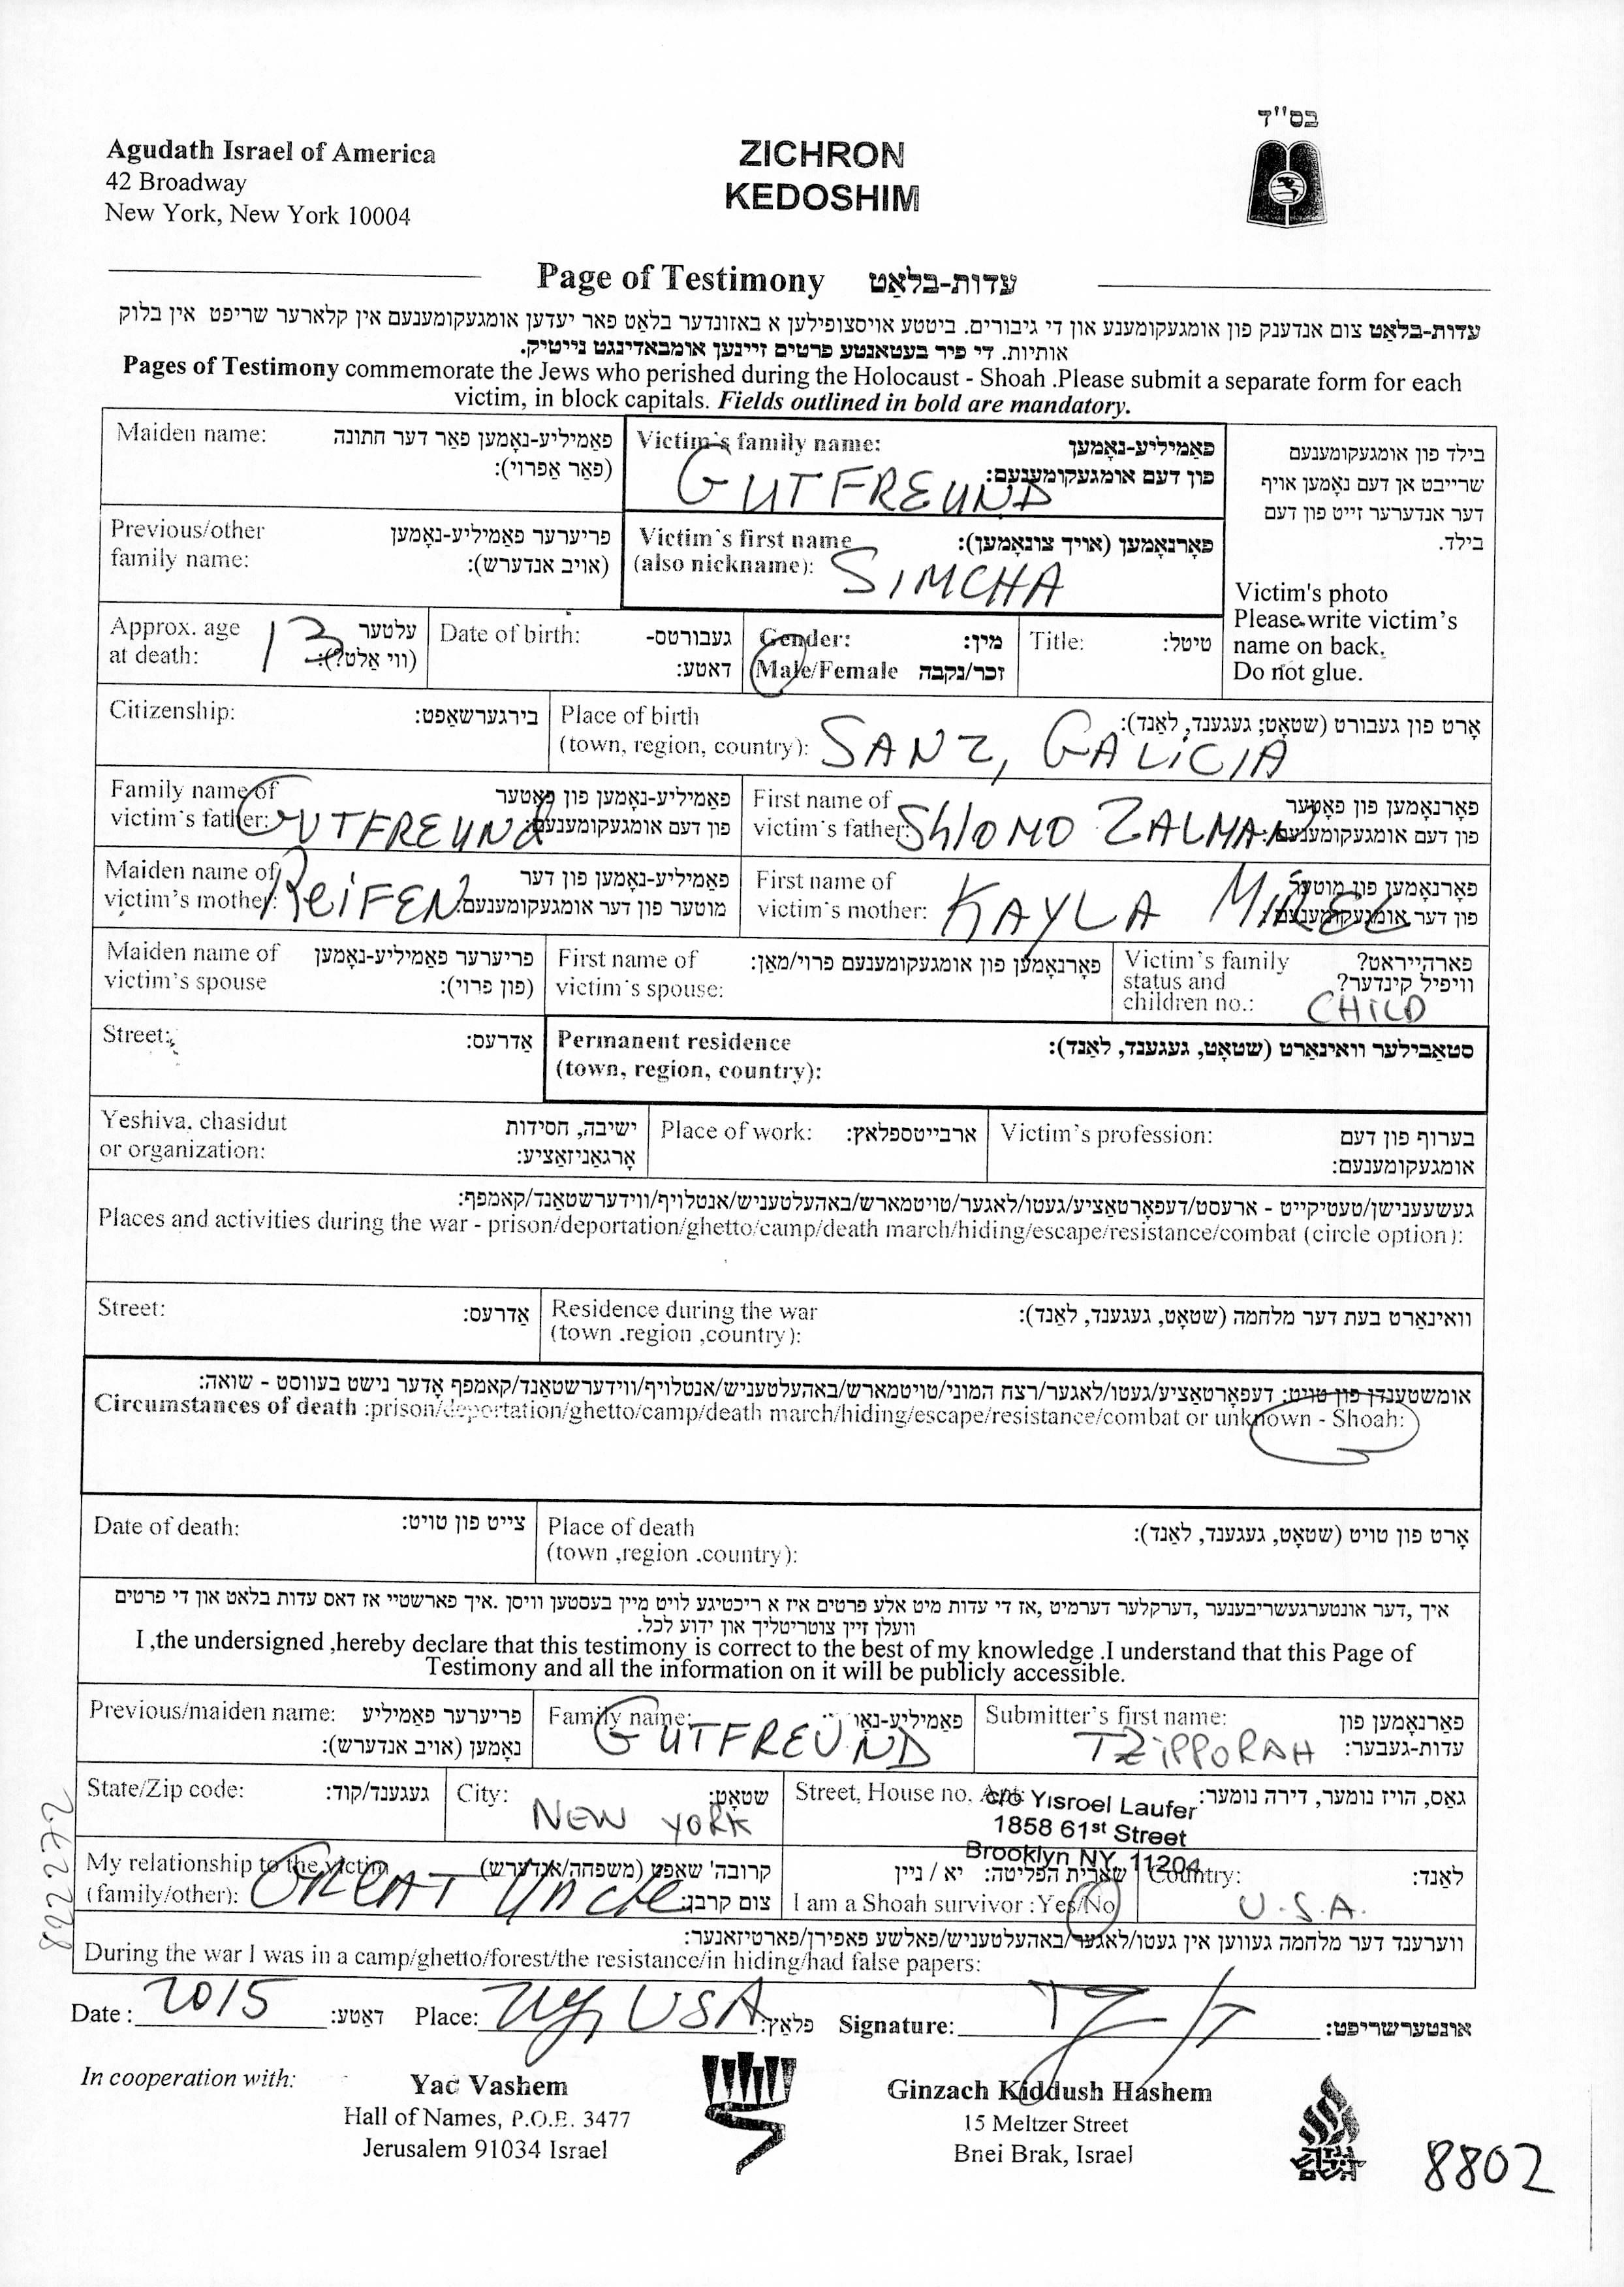 בס"ד
Agudath Israel of America
42 Broadway
New York, New York 10004
ZICHRON
KEDOSHIM
Page of Testimony עדות-בלאַט
עדות-בלאַט צום אנדענק פון אומגעקומענע און די גיבורים. ביטטע אויסצופילען א באזונדער בלאט פאר יעדען אומגעקומענעם אין קלארער שריפט אין בלוק
אותיות. די פיר בעטאנטע פרטים זיינען אומבאדינגט נייטיק.
Pages of Testimony commemorate the Jews who perished during the Holocaust - Shoah .Please submit a separate form for each
victim, in block capitals. Fields outlined in bold are mandatory.
Maiden name: פאַמיליע-נאָמען פאַר דער חתונה
(פאַר אַפרוי):
Victim's family name: פאַמיליע-נאָמען
פון דעם אומגעקומענעם:
GUTFREUND
בילד פון אומגעקומענעם
שרייבט אן דעם נאָמען אויף
דער אנדערער זייט פון דעם
בילד.
Victim's photo
Please write victim's
name on back.
Do not glue.
Previous/other פריערער פאַמיליע-נאָמען
family name: (אויב אנדערש):
Victim's first name פאָרנאָמען (אויך צונאָמען):
(also nickname): SIMCHA
Approx. age 13 עלטער
at death: (ווי אַלט?):
Date of birth: געבורטס-
דאטע:
Gender: מין:
Male/Female זכר/נקבה
Title: טיטל:
Citizenship: בירגערשאַפט:
Place of birth אָרט פון געבורט (שטאָט; געגענד, לאַנד):
(town, region, country): SANZ, GALICIA
Family name of פאַמיליע-נאָמען פון פאָטער
victim's father: GUTFREUND פון דעם אומגעקומענעם:
First name of פאָרנאָמען פון פאָטער
victim's father: ShlOMO ZALMAN פון דעם אומגעקומענעם:
Maiden name of פאַמיליע-נאָמען פון דער
victim's mother: ReiFEN מוטער פון דער אומגעקומענעם:
First name of פאָרנאָמען פון מוטער
victim's mother: KAYLA MIREL פון דער אומגעקומענעם:
Maiden name of פריערער פאַמיליע-נאָמען
victim's spouse (פון פרוי):
First name of פאָרנאָמען פון אומגעקומענעם פרוי/מאַן:
victim's spouse:
Victim's family פארהייראט?
status and וויפיל קינדער?
children no.: CHILD
Street: אַדרעס:
Permanent residence סטאַבילער וואינאַרט (שטאָט, געגענד, לאַנד):
(town, region, country):
Yeshiva, chasidut ישיבה, חסידות
or organization: אָרגאַניזאַציע:
Place of work: ארבייטספלאץ:
Victim's profession: בערוף פון דעם
אומגעקומענעם:
געשעענישן/טעטיקייט - ארעסט/דעפאָרטאַציע/געטו/לאגער/טויטמארש/באהעלטעניש/אנטלויף/ווידערשטאַנד/קאמפף:
Places and activities during the war - prison/deportation/ghetto/camp/death march/hiding/escape/resistance/combat (circle option):
Street: אַדרעס:
Residence during the war וואינאַרט בעת דער מלחמה (שטאָט, געגענד, לאַנד):
(town .region ,country):
אומשטענדן פון טויט: דעפאָרטאַציע/געטו/לאגער/רצח המוני/טויטמארש/באהעלטעניש/אנטלויף/ווידערשטאַנד/קאמפף אָדער נישט בעווסט - שואה:
Circumstances of death :prison/deportation/ghetto/camp/death march/hiding/escape/resistance/combat or unknown - Shoah:
Date of death: צייט פון טויט:
Place of death אָרט פון טויט (שטאָט, געגענד, לאַנד):
(town ,region .country):
איך ,דער אונטערגעשריבענער ,דערקלער דערמיט ,אז די עדות מיט אלע פרטים איז א ריכטיגע לויט מיין בעסטען וויסן .איך פארשטיי אז דאס עדות בלאט און די פרטים
וועלן זיין צוטריטליך און ידוע לכל.
I ,the undersigned ,hereby declare that this testimony is correct to the best of my knowledge .I understand that this Page of
Testimony and all the information on it will be publicly accessible.
Previous/maiden name: פריערער פאַמיליע
נאָמען (אויב אנדערש):
Family name: פאַמיליע-נאָ
GUTFREUND
Submitter's first name: פאַרנאָמען פון
TZiPPORAH עדות-געבער:
State/Zip code: געגענד/קוד:
City: שטאָט:
NEW YORK
Street, House no. Apt: גאַס, הויז נומער, דירה נומער:
c/o Yisroel Laufer
1858 61st Street
Brooklyn NY, 11204
My relationship to the victim קרובה' שאַפט (משפחה/אנדערש)
(family/other): GREAT Uncle צום קרבן:
שארית הפליטה: יא / ניין
I am a Shoah survivor :Yes/No
Country: לאַנד:
U.S.A.
ווערענד דער מלחמה געווען אין געטו/לאגער/באהעלטעניש/פאלשע פאפירן/פארטיזאנער:
During the war I was in a camp/ghetto/forest/the resistance/in hiding/had false papers:
Date: 2015 דאַטע: Place: NY, USA פלאַץ: Signature: אונטערשריפט:
In cooperation with:
Yad Vashem
Hall of Names, P.O.B. 3477
Jerusalem 91034 Israel
Ginzach Kiddush Hashem
15 Meltzer Street
Bnei Brak, Israel
8802
892272